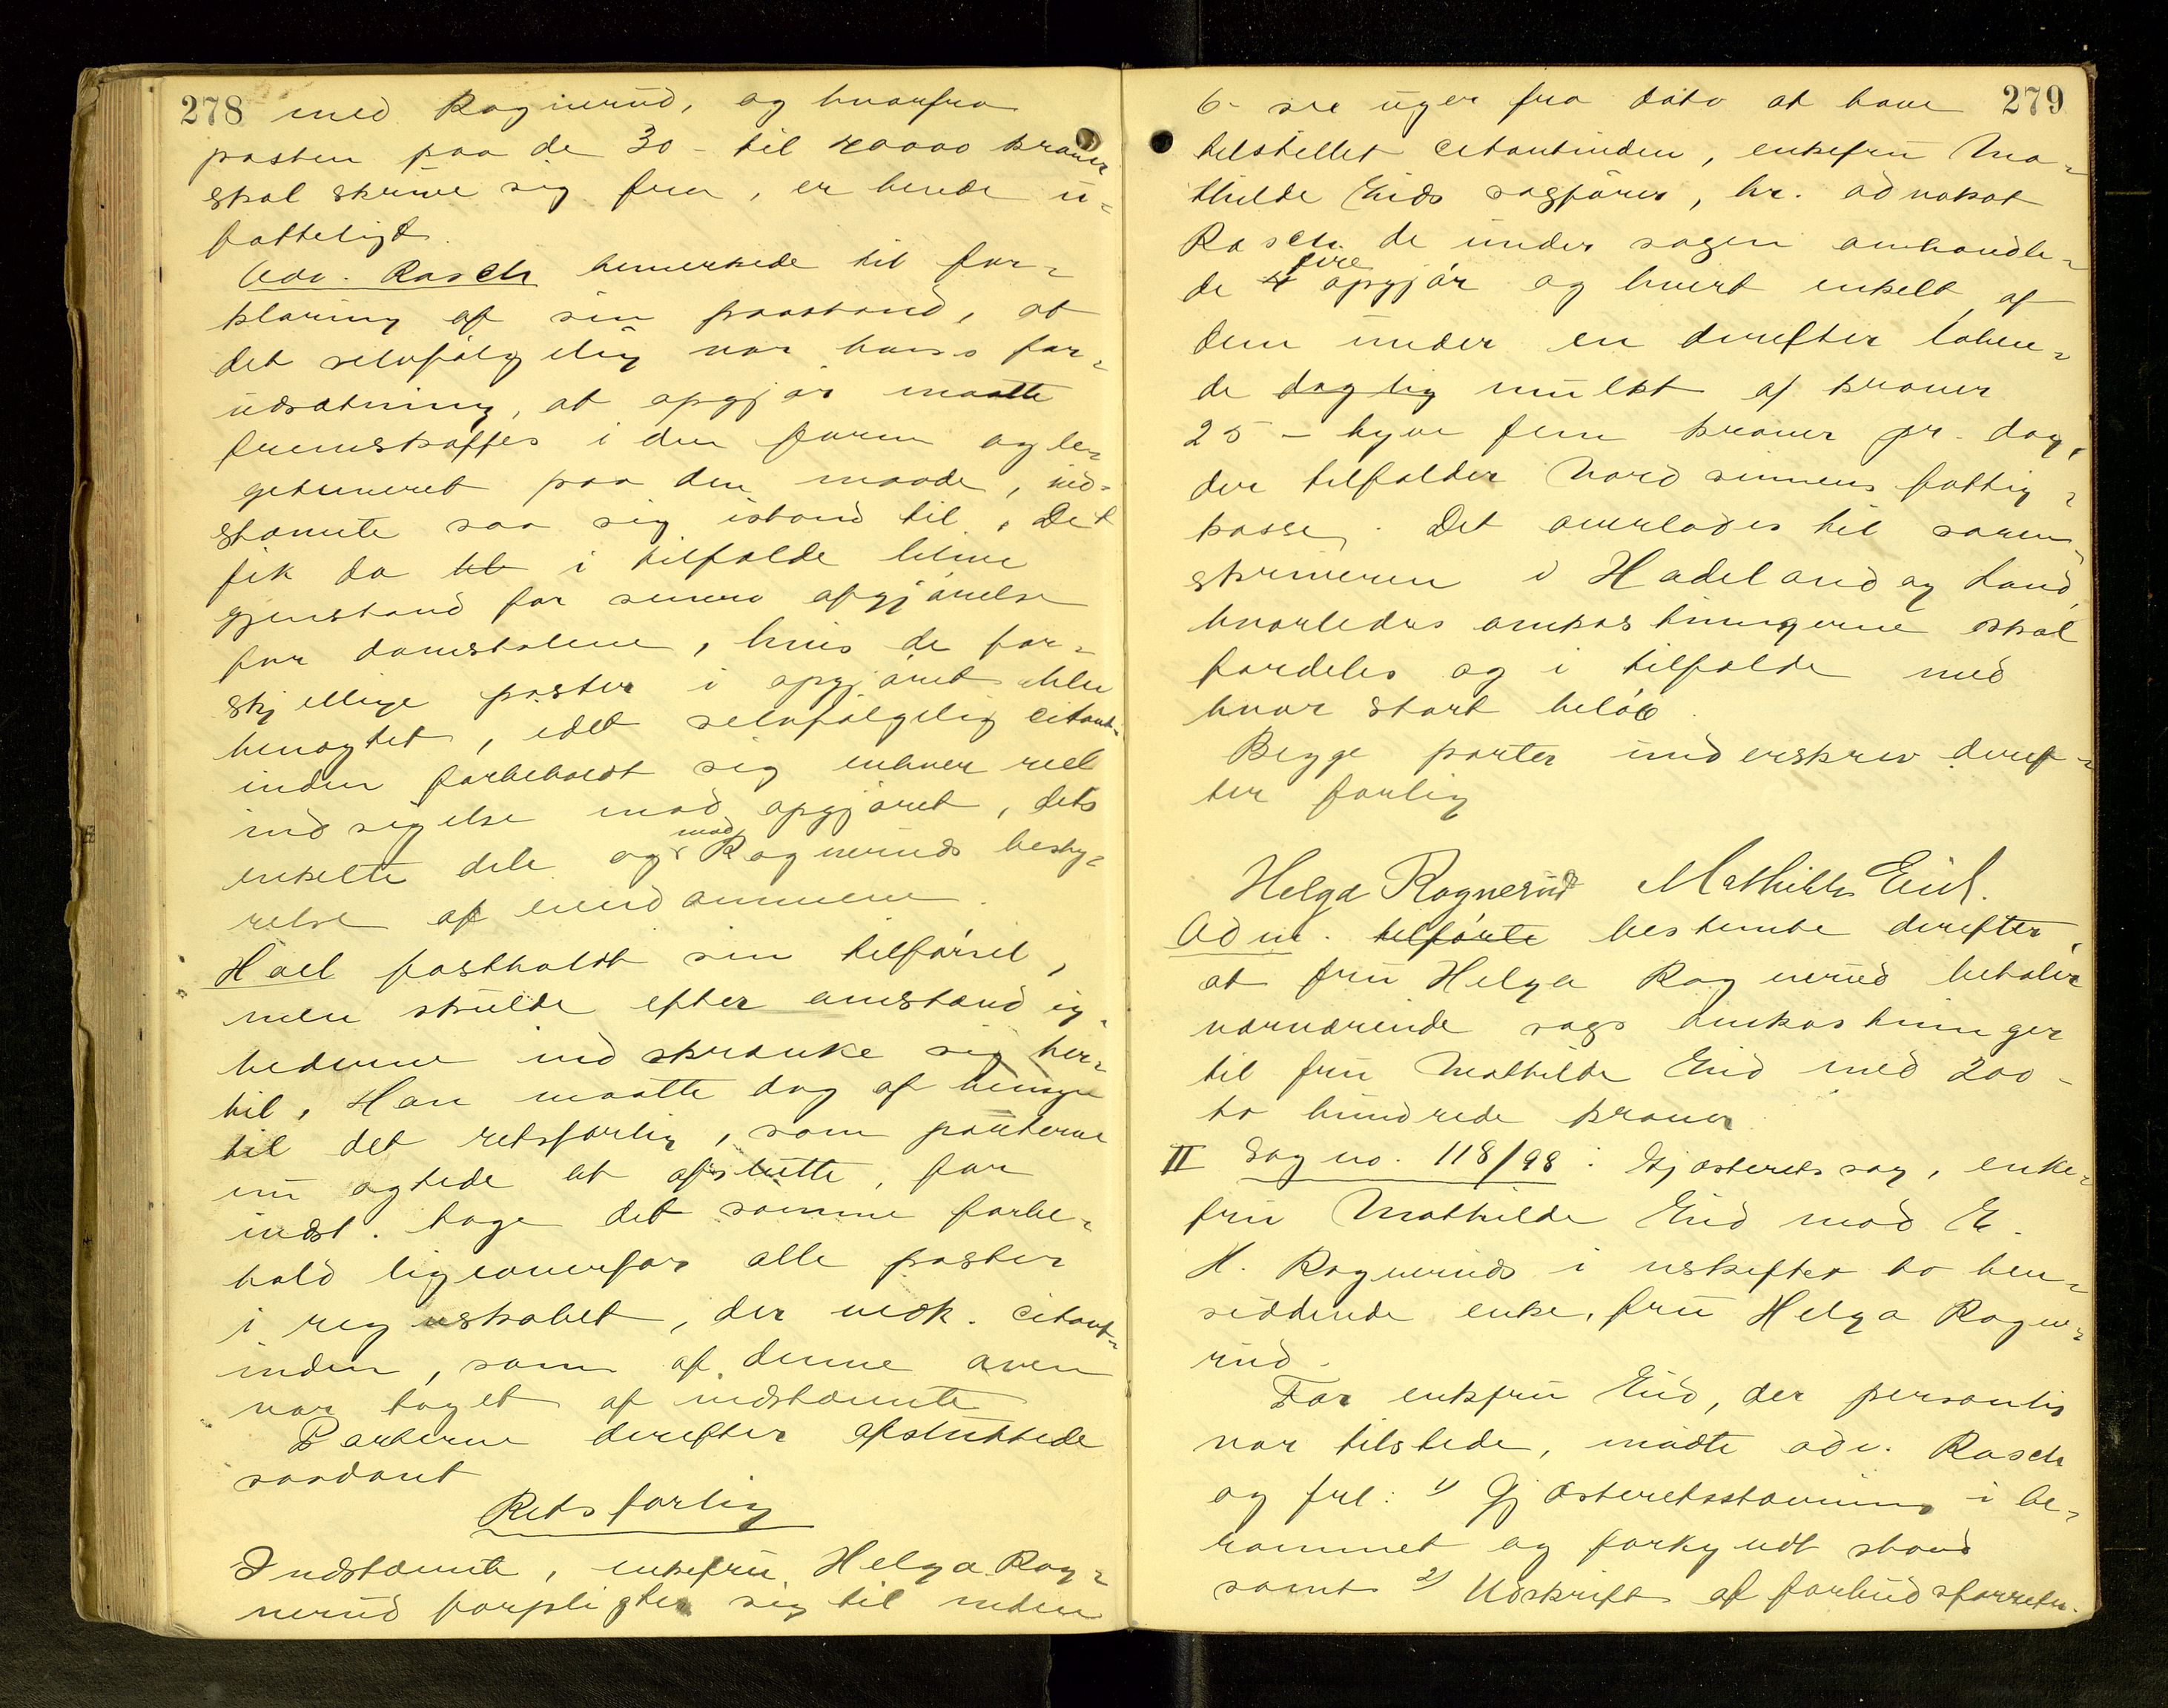 278 med Ragnerud, og hvorfra
posten paa de 30 - til 40000 kroner
skal skrive sig fra, er hende u=
fatteligt.
Adv. Rasch bemerkede til for=
klaring af sin paastand, at
det selvfølgelig var hans for=
udsætning, at opgjør maatte
fremskaffes i den form og le=
getimeret paa den maade, ind=
stævnte saa sig istand til. Det
fik da i tilfælde blive
gjenstand for senere afgjørelse
for domstolene, hvis de for=
skjellige poster i opgjøret blev
benægtet, idet selvfølgelig citant=
inden forbeholdt sig enhver reel
indsigelse mod opgjøret, dets
enkelte dele og mod Ragneruds besty=
relse af eiendommene.
Hoel fastholdt sin tilførsel,
men skulde efter omstændig=
hederne indskrænke sig her=
til. Han maatte dog af hensyn
til det retsforlig, som parterne
nu agtede at afslutte, for
indst. tage det samme forbe=
hold ligeoverfor alle poster
i regnskabet, der vedk. citant=
inden, som af denne oven
var taget af indstævnte
Parterne derefter afsluttede
saadant
Retsforlig
Indstævnte, enkefru Helga Rag=
nerud forpligter sig til inden
6- sex uger fra dato at have 279
tilstillet citantinden, enkefru Ma=
thilde Eids sagfører, hr. advokat
Rasch de under sagen omhandle=
de 4 fire opgjør og hvert enkelt af
dem under en derefter løben=
de daglig mulkt af kroner
25 - tyve fem kroner pr. dag,
der tilfalder Nordsinnens fattig=
kasse. Det overlades til soren=
skriveren i Hadeland og Land,
hvorledes omkostningerne skal
fordeles og i tilfælde med
hvor stort beløb.
Begge parter underskrev deref=
ter forlig
Helga Ragnerud Mathilde Eid.
Adm. tilførte bestemte derefter,
at fru Helga Ragnerud betaler
nærværende sags omkostninger
til fru Mathilde Eid med 200 -
to hundrede kroner
II Sag no. 118/98: Gjæsteretssag, enke=
fru Mathilde Eid mod E.
H. Ragneruds i uskiftet bo hen=
siddende enke, fru Helga Ragne=
rud.
For enkefru Eid, der personlig
var tilstede, mødte adv. Rasch
og frl: 1) Gjæsteretsstævning i be=
rammet og forkyndt stand
samt 2) Udskrift af forbudsforretn.